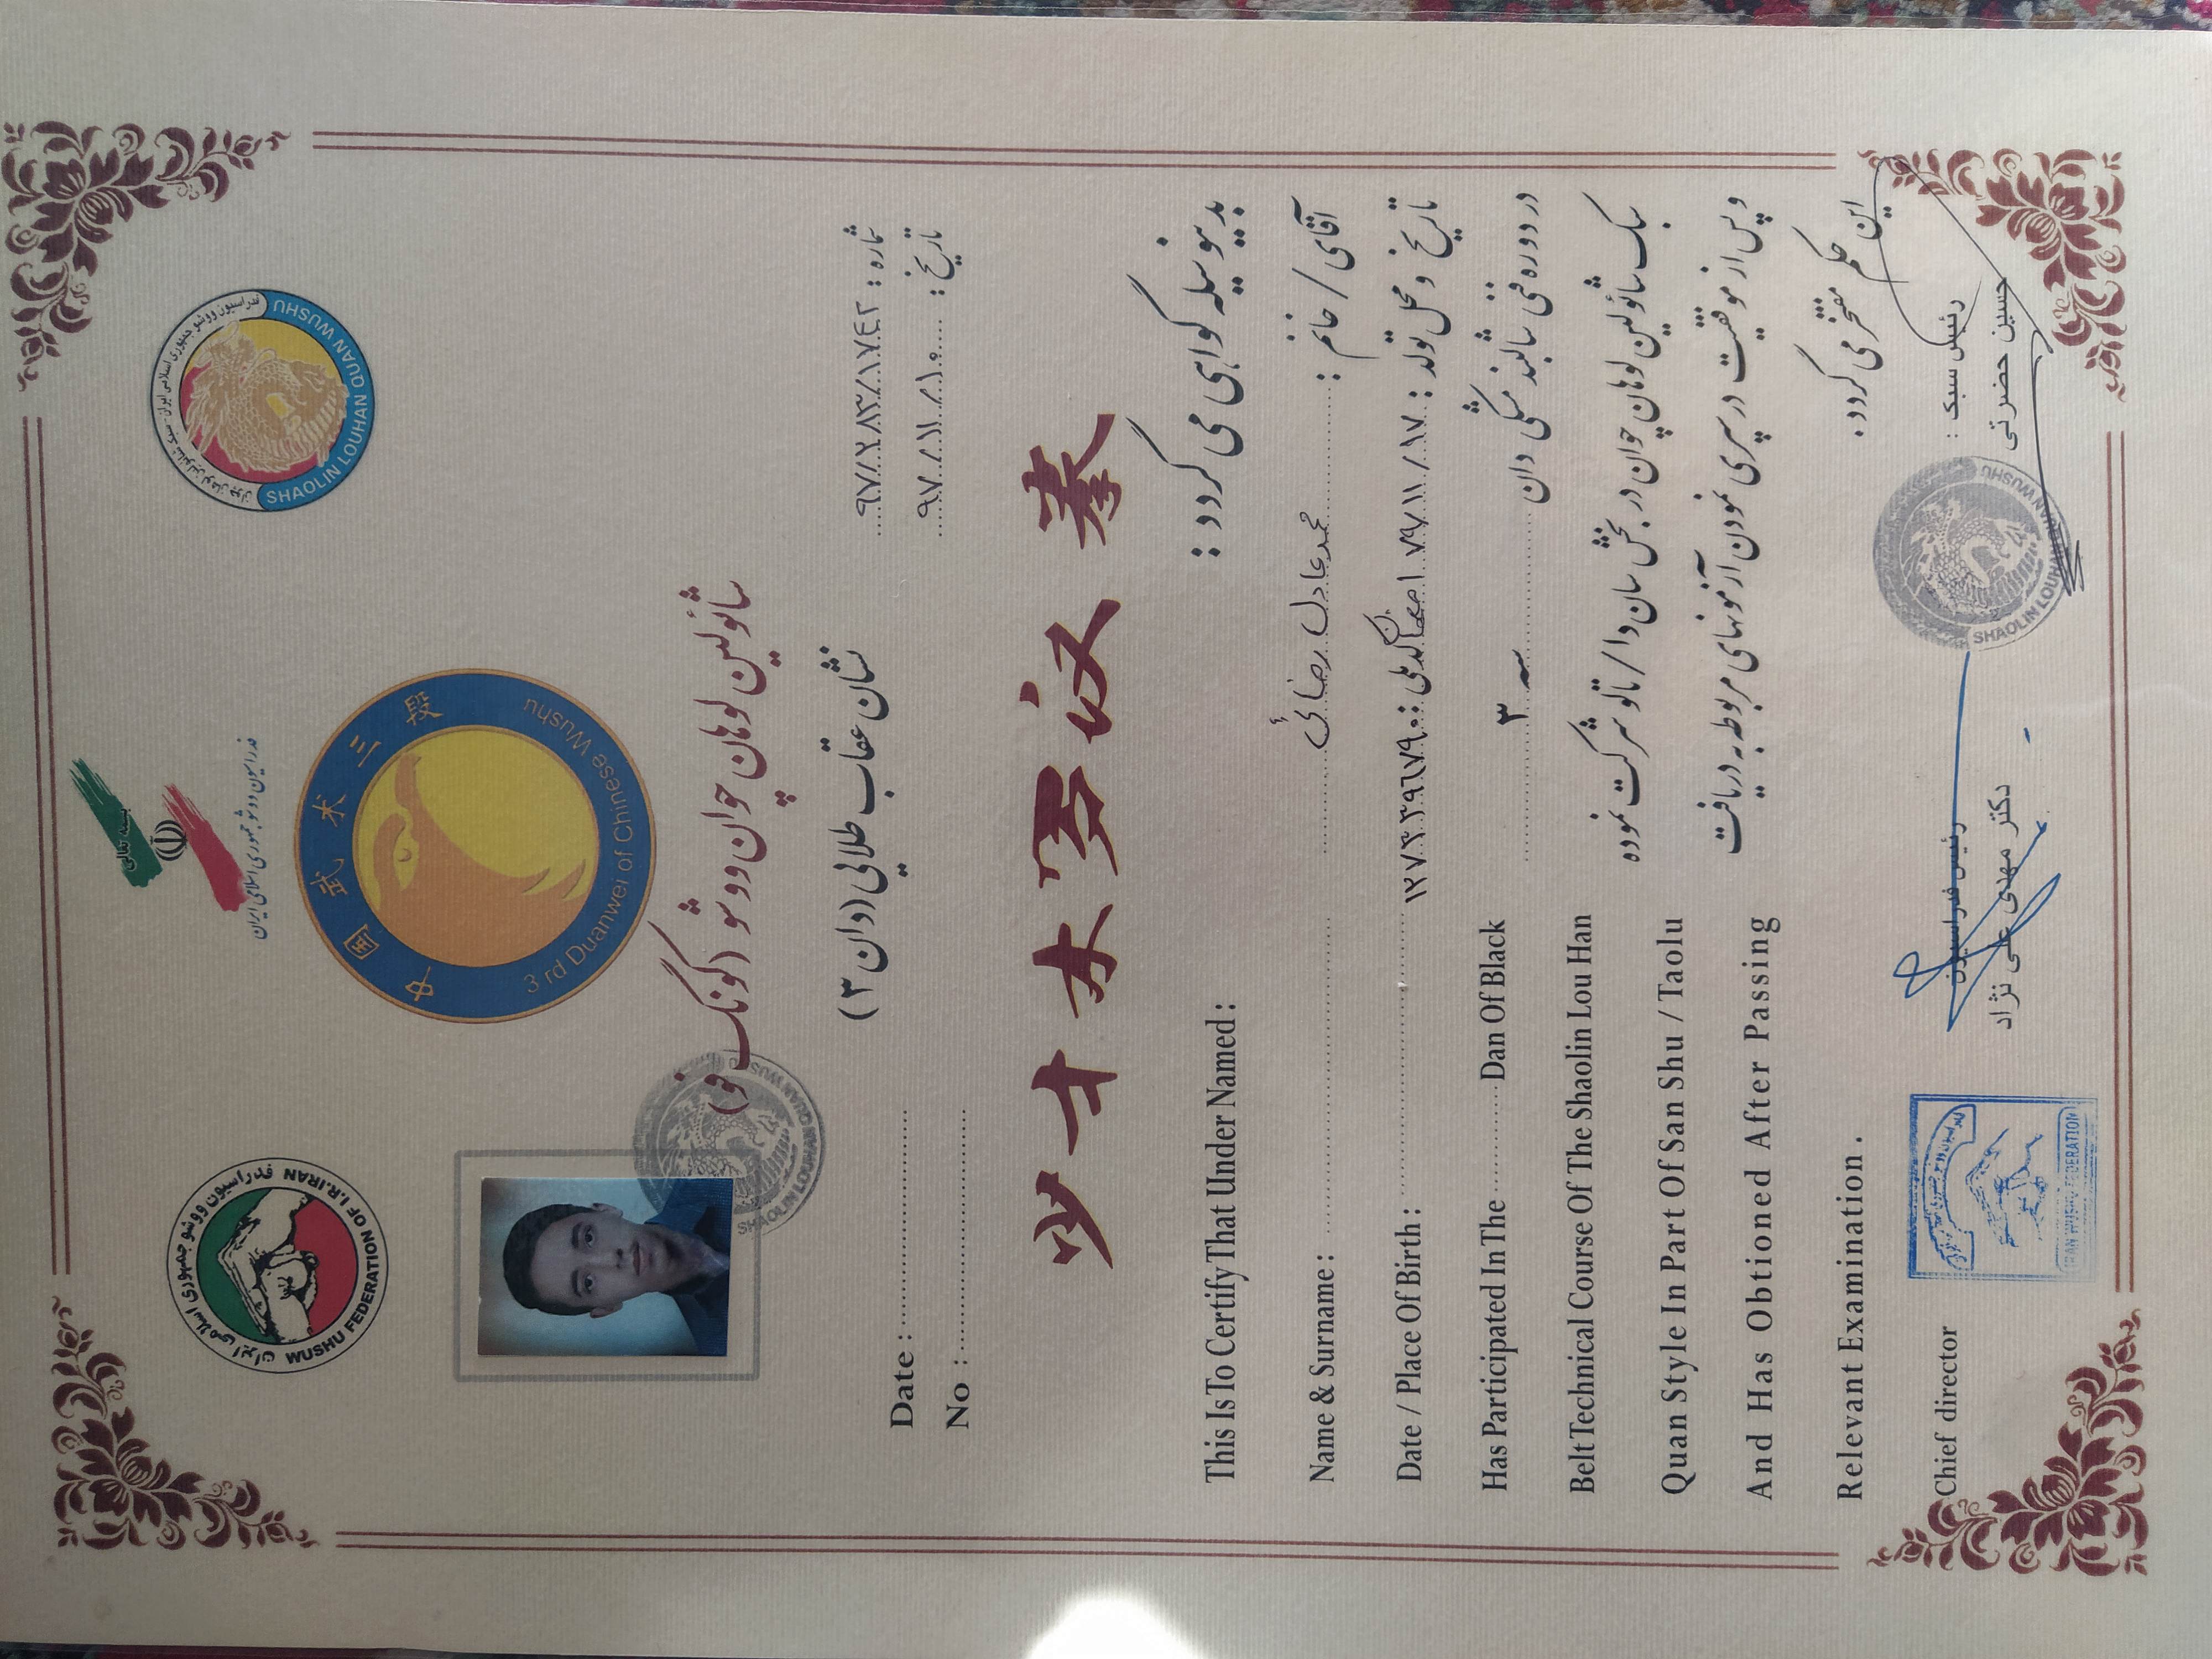 بسمه تعالی
فدراسیون ووشو جمهوری اسلامی ایران
فدراسیون ووشو جمهوری اسلامی ایران
WUSHU FEDERATION OF I.R.IRAN
中国武术三段
3 rd Duanwei of Chinese Wushu
فدراسیون ووشو جمهوری اسلامی ایران - سبک شائولین لوهان چوان
SHAOLIN LOUHAN QUAN WUSHU
شائولین لوهان چوان ووشو (کونگ فو)
نشان عقاب طلایی (دان ۳)
شماره : ۹۷/۲۸۳/۱۷٤۲
تاریخ : ۹۷/۱۱/۱۰
Date :
No :
SHAOLIN LOUHAN QUAN WUSHU
少林罗汉拳
بدینوسیله گواهی می گردد :
This Is To Certify That Under Named :
آقای / خانم : محمدعادل رضائی
Name & Surname :
تاریخ و محل تولد : ۷۹/۱۱/۱۷ کدملی :
Date / Place Of Birth :
در دوره فنی شالبند مشکی دان ۳ سه
Has Participated In The Dan Of Black
سبک شائولین لوهان چوان در بخش سان دا / تالو شرکت نموده
Belt Technical Course Of The Shaolin Lou Han
و پس از موفقیت در سپری نمودن آزمونهای مربوطه به دریافت
Quan Style In Part Of San Shu / Taolu
این حکم مفتخر می گردد.
And Has Obtioned After Passing
Relevant Examination .
رئیس سبک :
حسین حضرتی
SHAOLIN LOUHAN WUSHU
رئیس فدراسیون
دکتر مهدی علی نژاد
IRAN WUSHU FEDERATION
Chief director